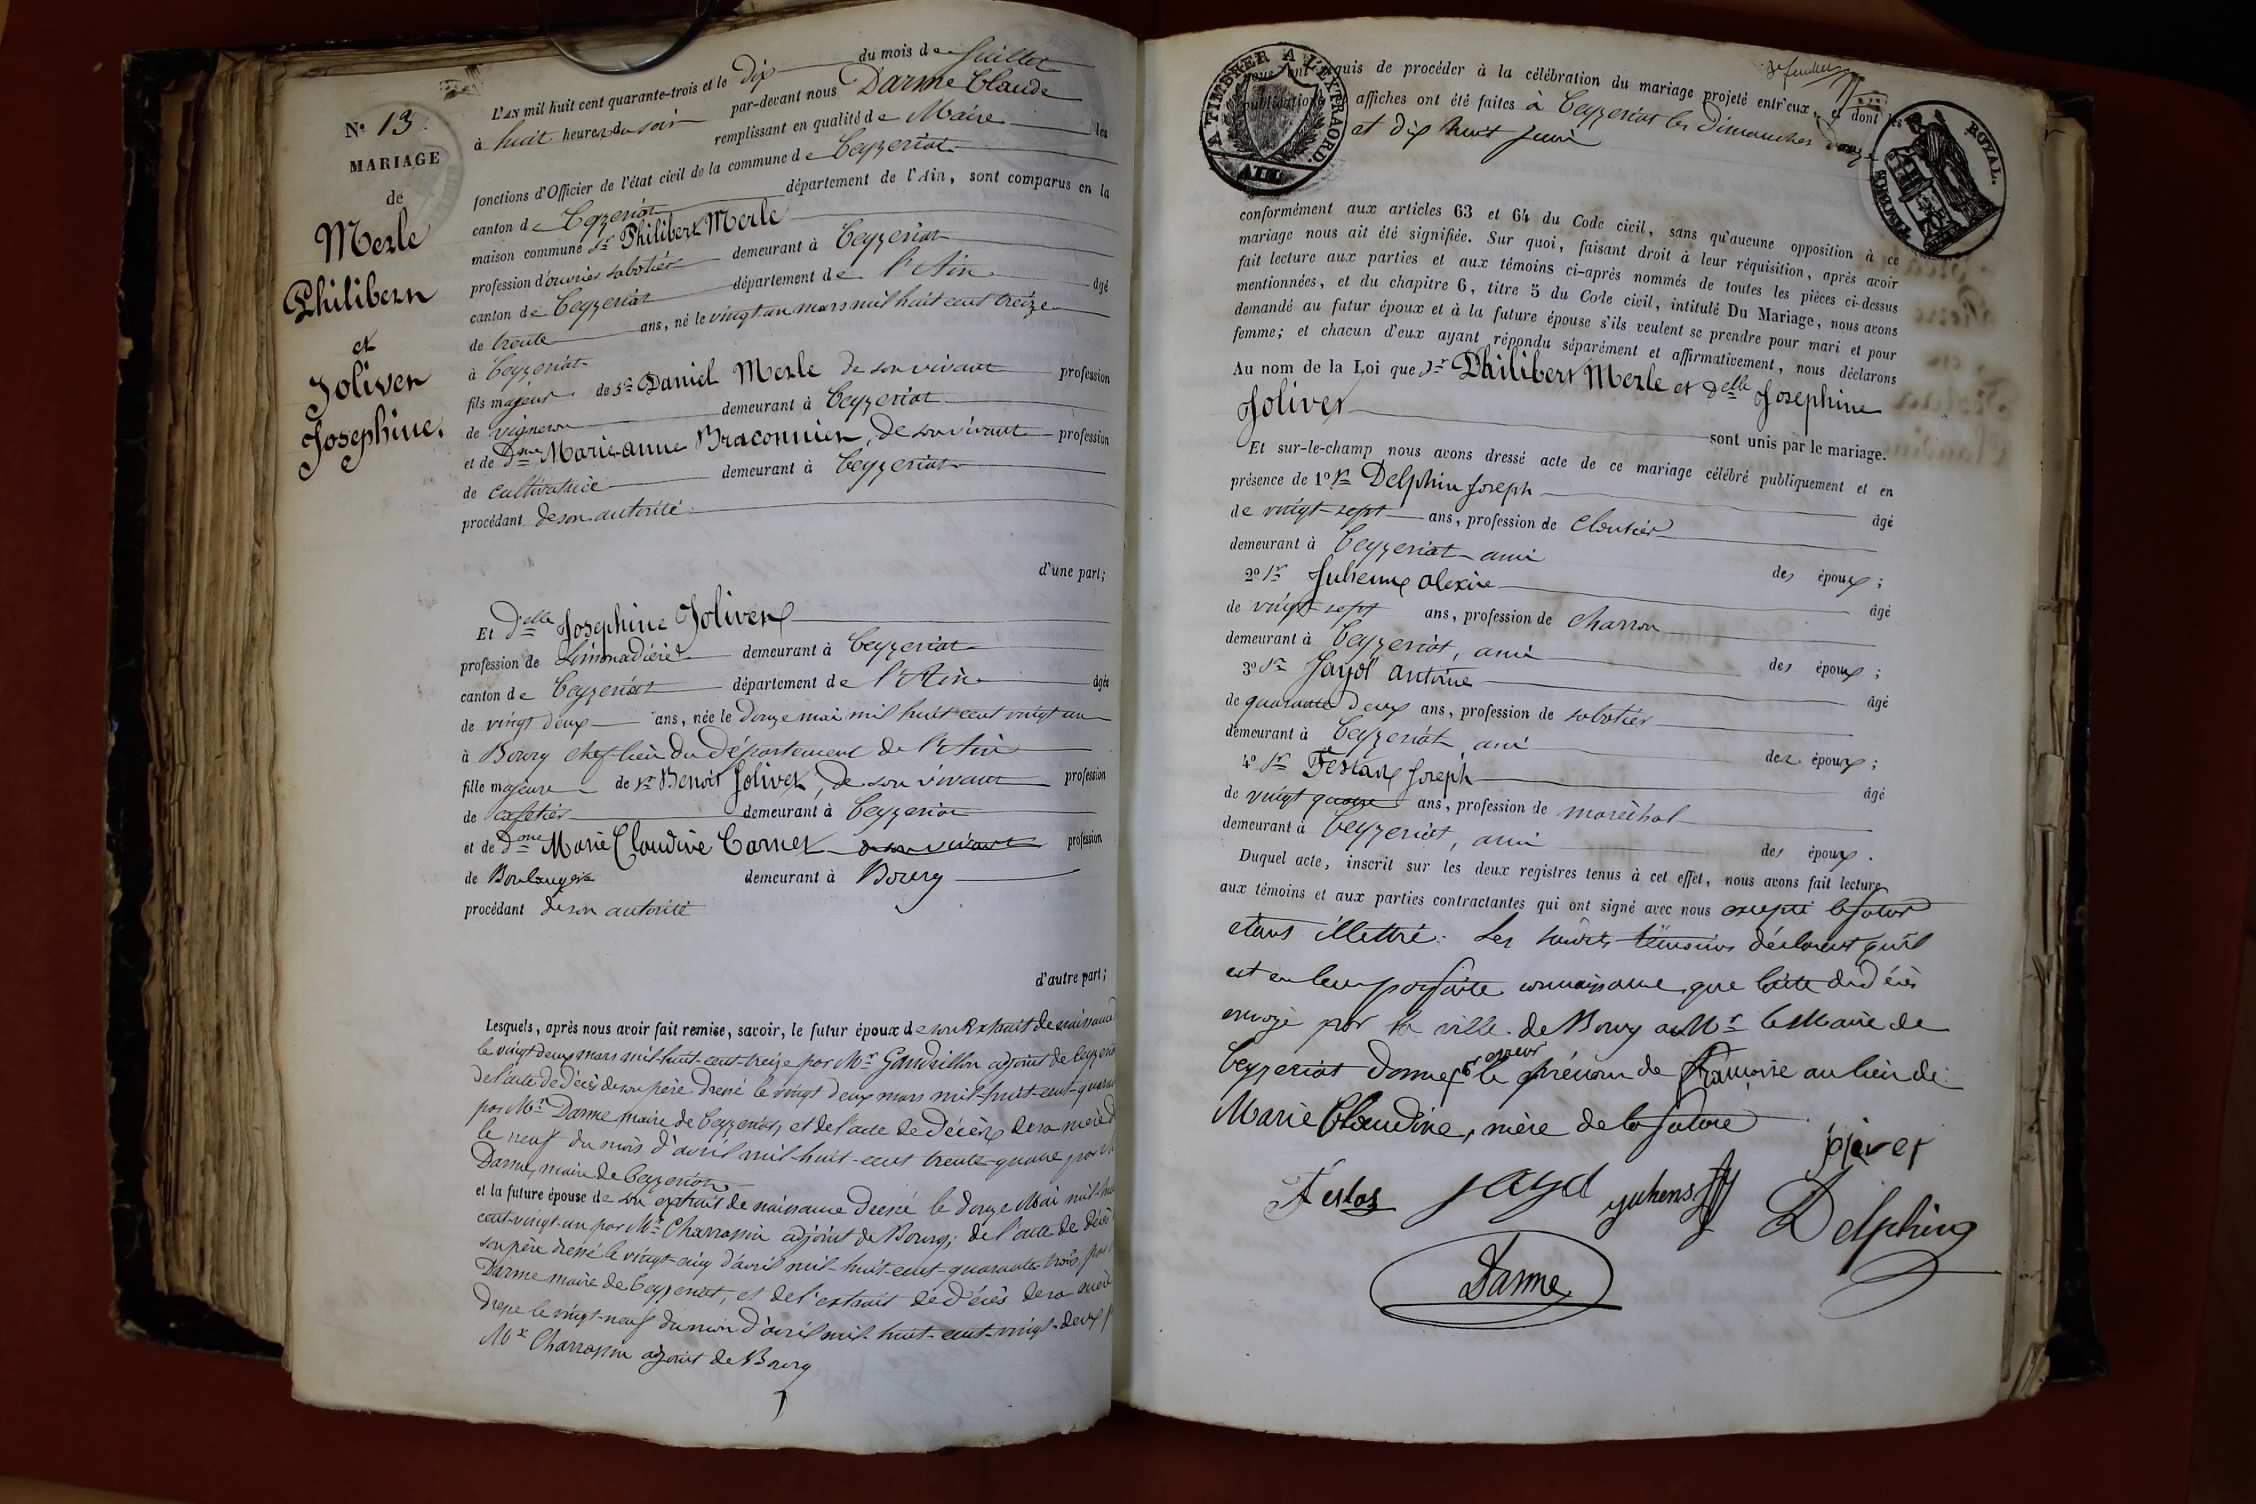 N° 13
MARIAGE
de
Merle
Philibert
et
Jolivet
Josephine.
L'AN mil huit cent quarante-trois et le dix du mois de Juillet
à huit heures du soir par-devant nous Darme Claude
remplissant en qualité de Maire les
fonctions d'Officier de l'état civil de la commune de Ceyzeriat
canton de Ceyzeriat département de l'Ain, sont comparus en la
maison commune Sr Philibert Merle
profession d'ouvrier sabotier demeurant à Ceyzeriat
canton de Ceyzeriat département de l'Ain âgé
de trente ans, né le vingt un mars mil huit cent treize
à Ceyzeriat
fils majeur de Sr Daniel Merle de son vivant profession
de vigneron demeurant à Ceyzeriat
et de Dme Marie-anne Braconnier, de son vivant profession
de cultivatrice demeurant à Ceyzeriat
procédant de son autorité
d'une part;
Et Delle Josephine Jolivet
profession de Limonadière demeurant à Ceyzeriat
canton de Ceyzeriat département de l'Ain âgée
de vingt deux ans, née le Douze mai mil huit cent vingt un
à Bourg chef-lieu du Département de l'Ain
fille majeure de Sr Benoit Jolivet, de son vivant profession
de cafetier demeurant à Ceyzeriat
et de Dme Marie Claudine Carnet de son vivant profession
de Boulangère demeurant à Bourg
procédant de son autorité
d'autre part;
Lesquels, après nous avoir fait remise, savoir, le futur époux de son Extrait de naissance
le vingt deux mars mil-huit-cent-treize par Mr Gaudrillon adjoint de Ceyzeriat
de l'acte de décès de son père dressé le vingt deux mars mil-huit-cent-quarante
par Mr Darme maire de Ceyzeriat, et de l'acte de décès de sa mère
le neuf du mois d'avril mil-huit-cent trente-quatre par
Darme, maire de Ceyzeriat
et la future épouse de son extrait de naissance dressé le douze Mai mil-hui
cent-vingt-un par Mr Charrassin adjoint de Bourg; de l'acte de décès
son père dressé le vingt-cinq d'avril mil-huit-cent-quarante-trois, par
Darme maire de Ceyzeriat, et de l'extrait de décès de sa mère
dressé le vingt-neuf du mois d'avril mil-huit-cent-vingt-deux
Mr Charrassin adjoint de Bourg
A TIMBRER A L'EXTRAORD.
AIN
TIMBRE ROYAL.
nous ont requis de procéder à la célébration du mariage projeté entr'eux, et dont les
publications affiches ont été faites à Ceyzeriat les Dimanches onze
et dix huit juin
conformément aux articles 63 et 64 du Code civil, sans qu'aucune opposition à ce
mariage nous ait été signifiée. Sur quoi, faisant droit à leur réquisition, après avoir
fait lecture aux parties et aux témoins ci-après nommés de toutes les pièces ci-dessus
mentionnées, et du chapitre 6, titre 5 du Code civil, intitulé Du Mariage, nous avons
demandé au futur époux et à la future épouse s'ils veulent se prendre pour mari et pour
femme; et chacun d'eux ayant répondu séparément et affirmativement, nous déclarons
Au nom de la Loi que Sr Philibert Merle et Delle Josephine
Jolivet
sont unis par le mariage.
Et sur-le-champ nous avons dressé acte de ce mariage célébré publiquement et en
présence de 1° Sr Delphin Joseph âgé
de vingt-sept ans, profession de Cloutier
demeurant à Ceyzeriat ami des époux;
2° Sr Juhenne alexise âgé
de vingt-sept ans, profession de charron
demeurant à Ceyzeriat, ami des époux;
3° Sr Jayol antoine âgé
de quarante deux ans, profession de sabotier
demeurant à Ceyzeriat, ami des époux;
4° Sr Festas Joseph âgé
de vingt quatre ans, profession de maréchal
demeurant à Ceyzeriat, ami des époux.
Duquel acte, inscrit sur les deux registres tenus à cet effet, nous avons fait lecture
aux témoins et aux parties contractantes qui ont signé avec nous excepté le futur
étant illettré. Les susdits témoins déclarent qu'il
est en leur parfaite connaissance que l'acte de décès
envoyé par la ville de Bourg à Mr le Maire de
Ceyzeriat donne par erreur le prénom de Françoise au lieu de
Marie Claudine, mère de la future
Jolivet
Festas Jayol Juhens Delphin
Darme